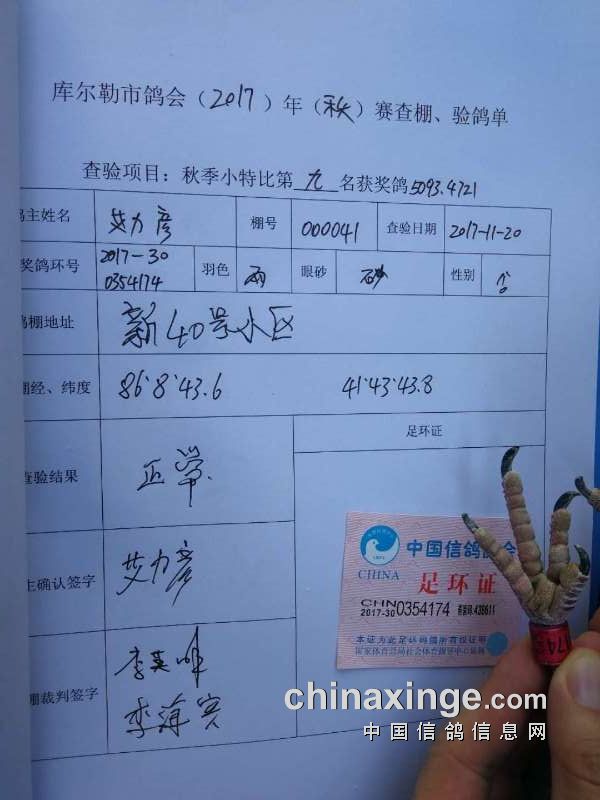 库尔勒市鸽会（2017）年（秋）赛查棚、验鸽单
查验项目：秋季小特比第 九 名获奖鸽5093.4721
鸽主姓名 艾力彦 棚号 000041 查验日期 2017-11-20
奖鸽环号 2017-30 0354174 羽色 雨 眼砂 砂 性别 ♀
鸽棚地址 新40号小区
棚经、纬度 86°8'43.6 41°43'43.8
查验结果 正常.
足环证
主确认签字 艾力彦
棚裁判签字 李英
李
中国信鸽协会
CHINA
足环证
CHN 2017-30 0354174
本证为此足环鸽拥有权证明
国家体育总局社会体育指导中心监制
174
chinaxinge.com
中国信鸽信息网